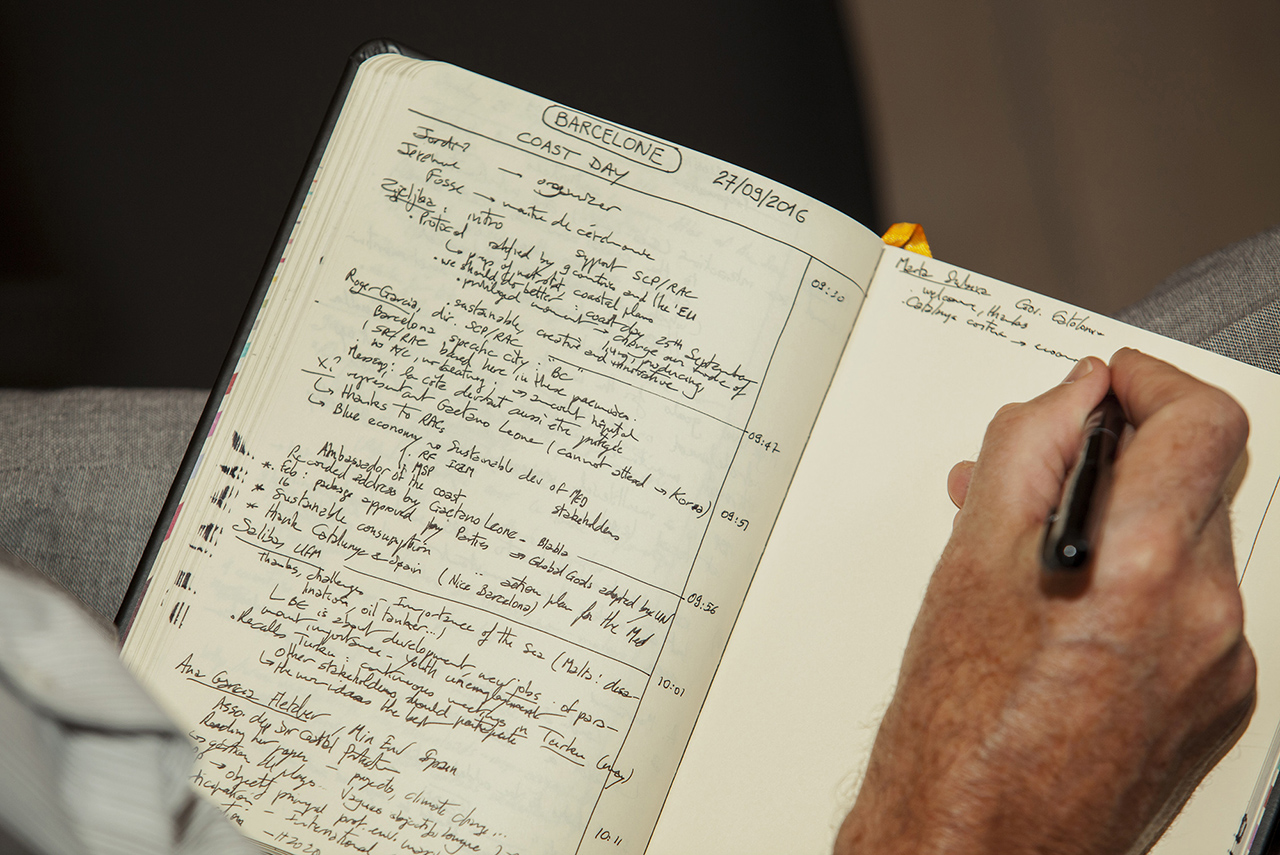 BARCELONE
COAST DAY 27/09/2016
Jordi?
Jerome → organizer
Fosse → maître de cérémonie
Zeljka: intro support SCP/RAC
• Protocol ratified by 9 countries and the EU
of national coastal plans
• we should do better: coast day 25th September
• privileged moment → change our mode of
living, producing
09:30
Roger Garcia, dir. SCP/RAC
• sustainable, creative and innovative
Barcelona specific city: BC
(SPC/RAC based here in these premises.
no A/C, no heating; → ancient hospital
Message: la côte devrait aussi être protégée
09:47
X? représentant Gaetano Leone (cannot attend → Korea)
↳ thanks to RACs
↳ Blue economy → Sustainable dev of MED
stakeholders
Ambassador of the coast
09:51
Recorded address by Gaetano Leone - Blabla
* Feb 16: package approved by Parties → Global Goals adopted by UN
* Sustainable consumption action plan for the Med
* Thank Catalunya & Spain (Nice Barcelona)
09:56
UFM
Thanks, challenges - Importance of the sea (Malta: desalination, oil tanker...)
↳ BE is about development, new jobs: of paramount importance - Youth unemployment
• Recalls Turkey: continuous meetings in Turkey
↳ Other stakeholders should participate
10:01
Ana García Fletcher, Min Env Spain
Asso. dep Dir Coastal Protection
Reading her paper - projects, climate change...
→ objectif principal prot. env.
International
- H2020
10.11
Marta Gov. Catalonia
• welcome, thanks
• Catalunya →